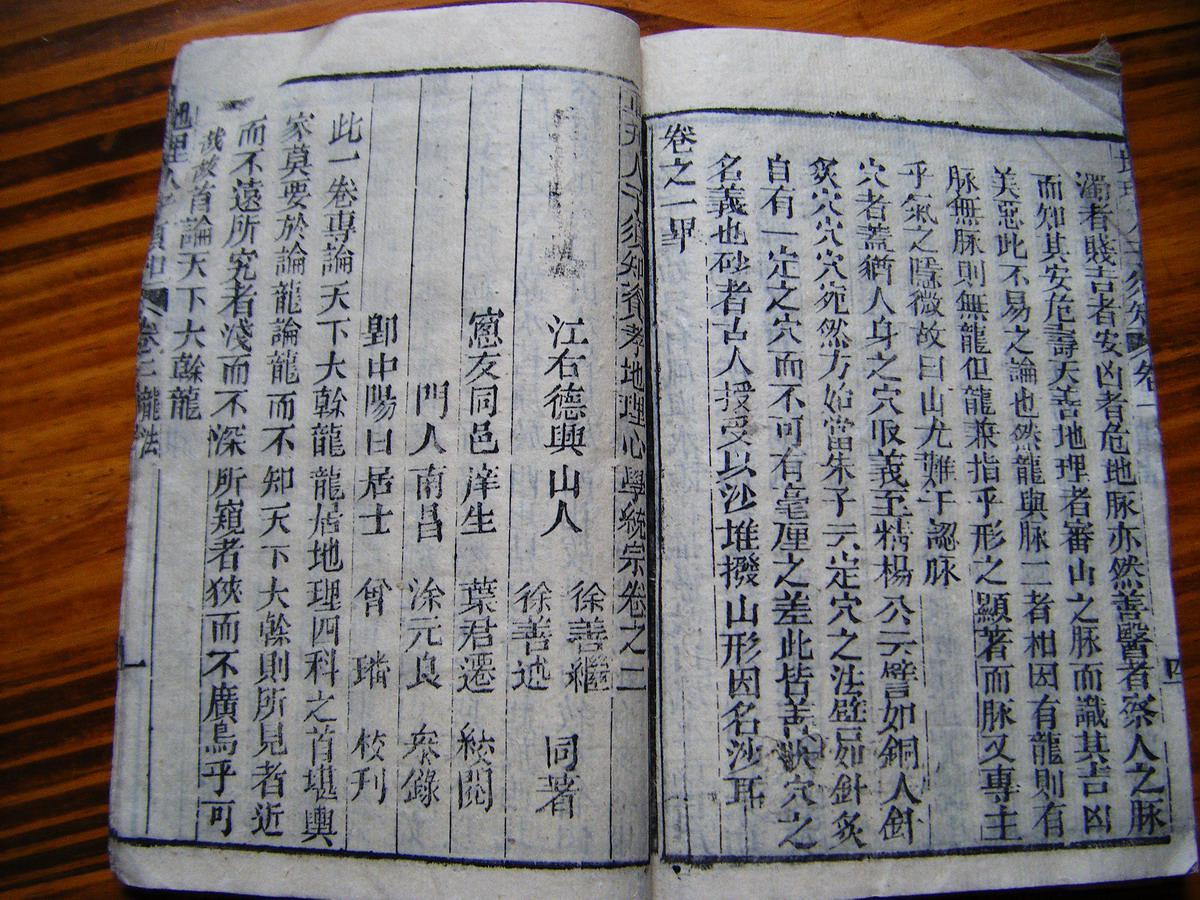 濁者賤吉者安凶者危地脉亦然善醫者察人之脉
而知其安危壽夭善地理者審山之脉而識其吉凶
美惡此不易之論也然龍與脉二者相因有龍則有
脉無脉則無龍但龍兼指乎形之顯著而脉又專主
乎氣之隱微故曰山尤難于認脉
穴者蓋猶人身之穴取義至精楊公云譬如銅人針
灸穴穴穴宛然方始當朱子云定穴之法譬如針灸
自有一定之穴而不可有毫厘之差此皆善狀穴之
名義也砂者古人授受以沙堆撥山形因名沙耳
卷之一畢
人子須知資孝地理心學統宗卷之二
江右德興山人
徐善繼
徐善述
同著
窻友同邑庠生 葉君遷 校閱
門人南昌 涂元良 叅錄
鄞中陽日居士 曾璠 校刋
此一卷專論天下大榦龍龍居地理四科之首堪輿
家莫要於論龍論龍而不知天下大榦則所見者近
而不遠所究者淺而不深所窺者狹而不廣烏乎可
哉故首論天下大榦龍
四
卷二 龍法
一